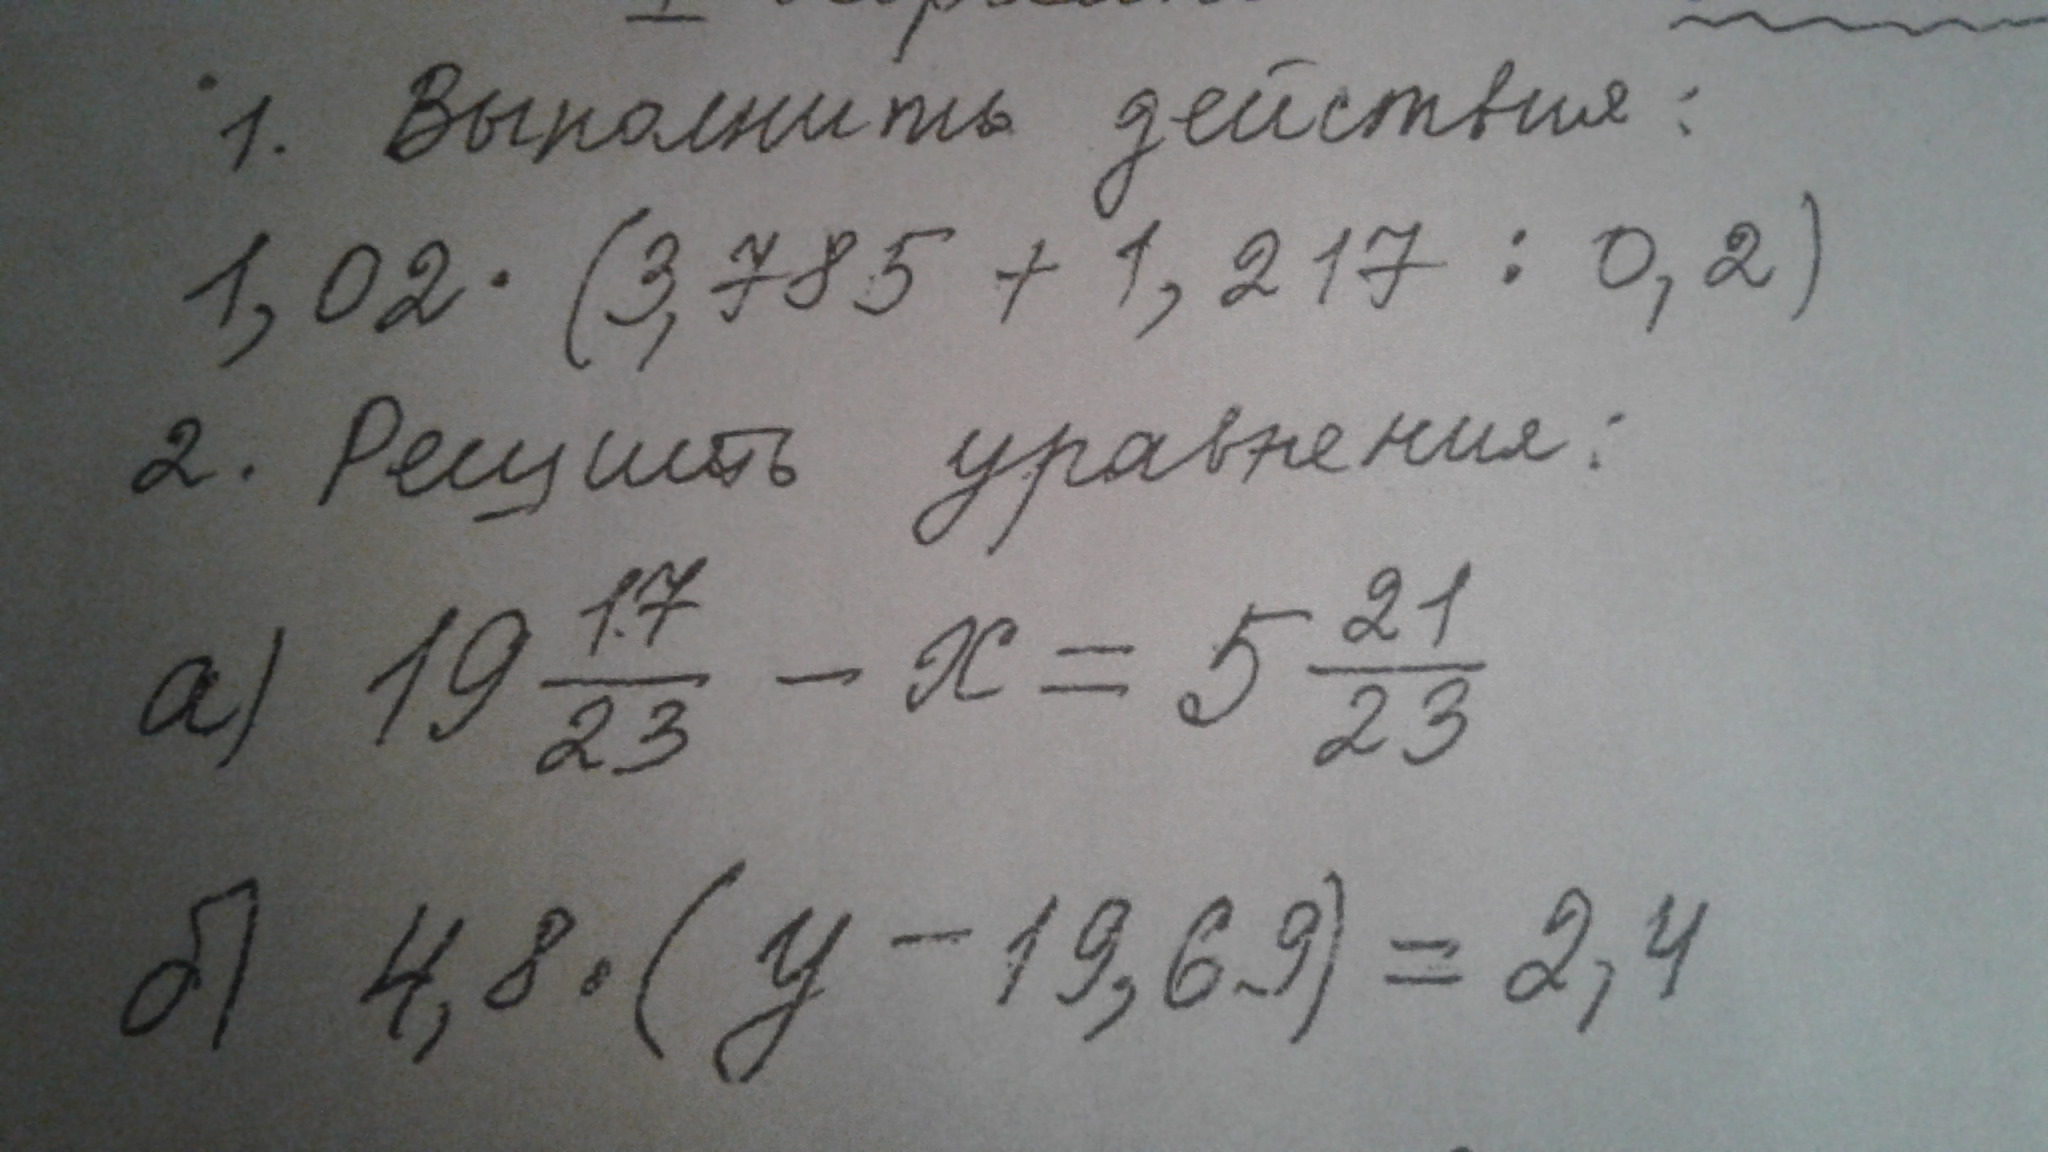 1. Выполнить действия:
1,02 · (3,785 + 1,217 : 0,2)
2. Решить уравнения:
а) 19 17/23 - x = 5 21/23
б) 4,8 · (y - 19,69) = 2,4